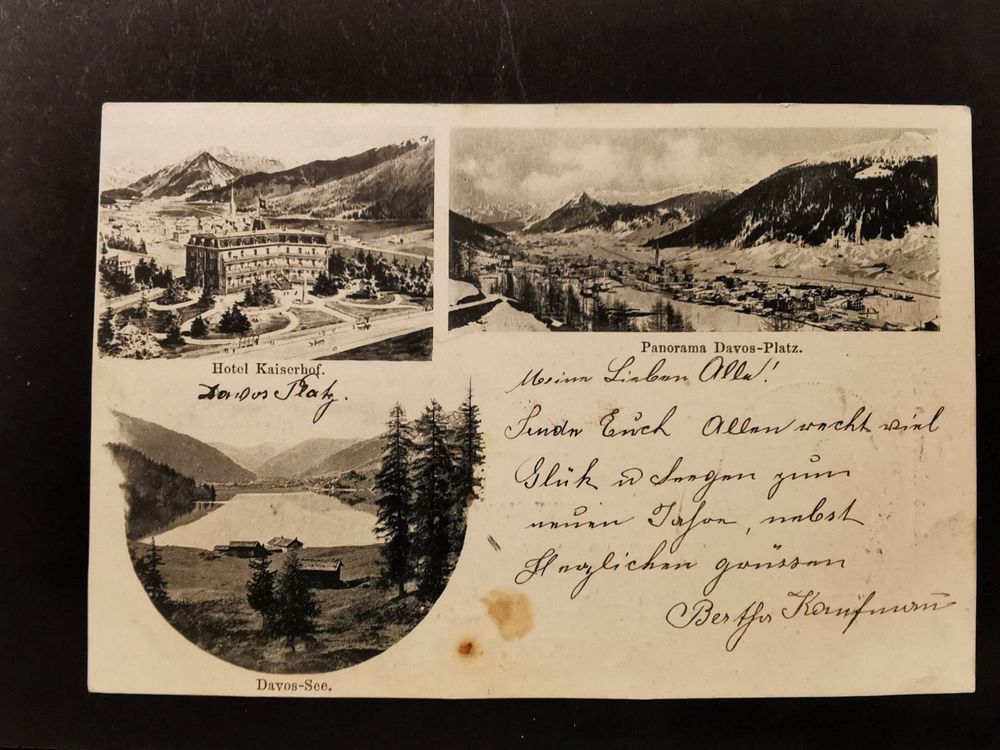 Hotel Kaiserhof.
Davos Platz.
Panorama Davos-Platz.
Meine Lieben Alle!
Sende Euch Allen recht viel
Glük u Seegen zum
neuen Jahre, nebst
Herzlichen grüssen
Bertha Kaufmann
Davos-See.